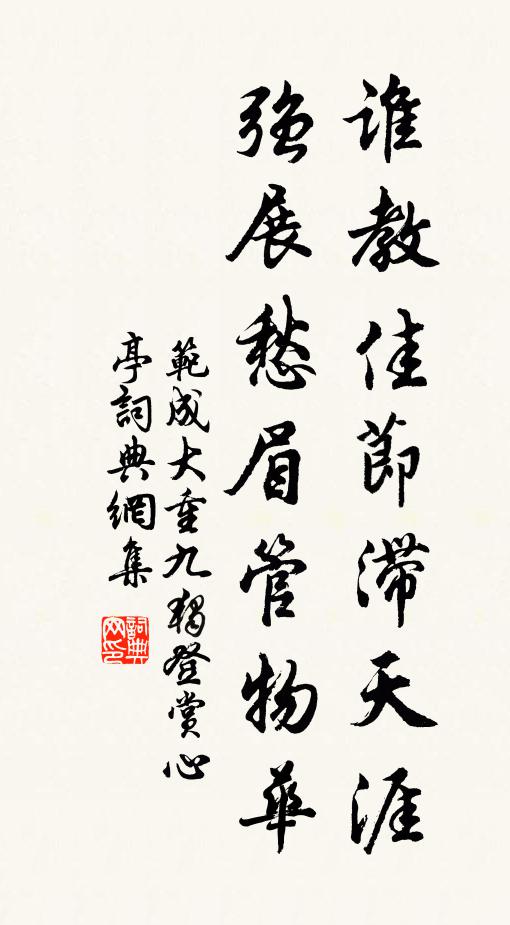 誰教佳節滯天涯
強展愁眉管物華
範成大重九獨登賞心
亭詞典網集
詞典
网印